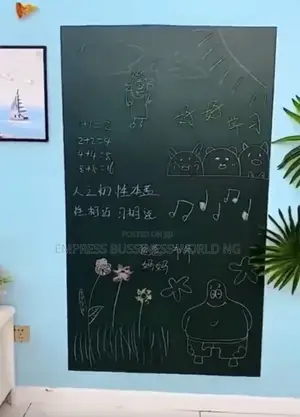 好好
学习
1+1=2
2+2=4
4+4=8
人之初 性本善
性相近 习相远
POSTED ON
EMPRESS BUSSINESSWORLD NG
爸爸
妈妈